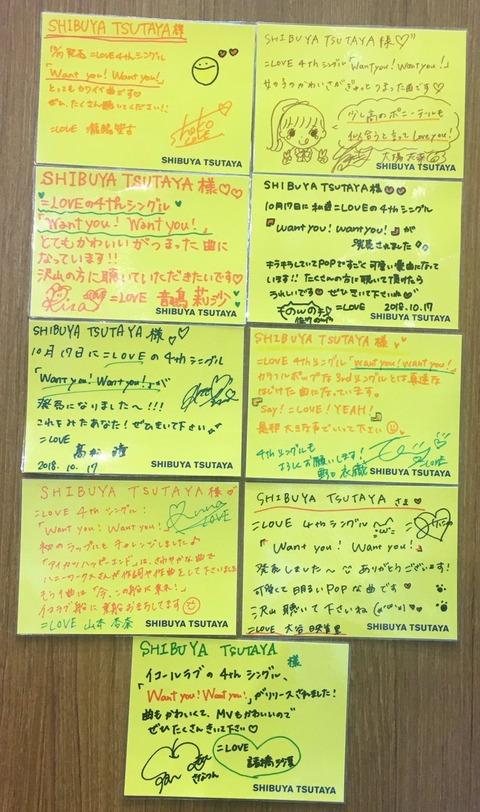 SHIBUYA TSUTAYA様
10/17発売 =LOVE 4thシングル
「Want you! Want you!」
とってもカワイイ曲です♡
ぜひ、たくさん聴いてください!!
=LOVE
SHIBUYA TSUTAYA
SHIBUYA TSUTAYA様♡
=LOVE 4thシングル「Want you! Want you!」
女の子のかわいさがぎゅっとつまった曲です♡
少し高めポニーテールも
似合うと言って Love you!
SHIBUYA TSUTAYA
SHIBUYA TSUTAYA様♡♡
=LOVEの4thシングル
「Want you! Want you!」
とてもかわいいがつまった曲に
なっています!!
沢山の方に聴いていただきたいです♡
Risa =LOVE 音嶋莉沙
SHIBUYA TSUTAYA
SHIBUYA TSUTAYA様♥♥
10月17日に私達=LOVEの4thシングル
「Want you! Want you!」が
発売されました
キラキラしていてPOPですごく可愛い楽曲になって
います!! たくさんの方に聴いて頂けたら
うれしいです ぜひ聴いて下さいね
=LOVE 2018.10.17
SHIBUYA TSUTAYA
SHIBUYA TSUTAYA様♡
10月17日に=LOVEの4thシングル
「Want you! Want you!」が
発売になりました〜!!!
これをみたあなた!ぜひきいて下さい。
=LOVE
髙松瞳
2018.10.17
SHIBUYA TSUTAYA
SHIBUYA TSUTAYA様
=LOVE 4thシングル「Want you! Want you!」
カラフルポップな3rdシングルとは真逆な
はじけた曲になっています。
「Say! =LOVE! YEAH!」
是非大きな声でいって下さい
4thシングルも
よろしくお願いします!
=LOVE
SHIBUYA TSUTAYA
SHIBUYA TSUTAYA様♡
=LOVE 4thシングル!
「Want you! Want you!」
初のラップにもチャレンジしました♪
「アイカツハッピーエンド」は、さわやかな曲で
=LOVE 山本杏奈
SHIBUYA TSUTAYA
SHIBUYA TSUTAYA さま♡
=LOVE 4thシングル
「Want you! Want you!」
発売しました〜 ありがとうございます!
可愛くて明るいPOPな曲です♡
沢山聴いて下さいね
=LOVE 大谷映美里
SHIBUYA TSUTAYA
SHIBUYA TSUTAYA 様
イコールラブの4thシングル、
「Want you! Want you!」がリリースされました!
曲もかわいくて、MVもかわいいので
ぜひたくさんきいて下さい♡
=LOVE
諸橋沙夏
SHIBUYA TSUTAYA